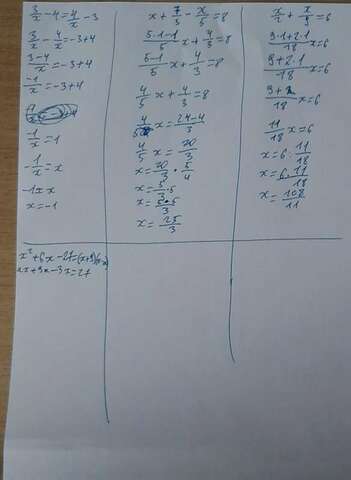 3/x - 4 = 4/x - 3
3/x - 4/x = -3+4
3-4/x = -3+4
-1/x = -3+4
-1/x = 1
-1/x = x
-1 = x
x = -1
x + 7/3 - x/5 = 8
5·1-1/5 x + 4/3 = 8
5-1/5 x + 4/3 = 8
4/5 x + 4/3 = 8
4/5 x = 24-4/3
4/5 x = 20/3
x = 20/3 · 5/4
x = 5/3 · 5
x = 5·5/3
x = 25/3
x/2 + x/9 = 6
9·1+2·1/18 x = 6
9+2·1/18 x = 6
11/18 x = 6
x = 6 · 11/18
x = 6·11/18
x = 108/11
x² + 6x - 27 = (x+9)
+9x-3x=27